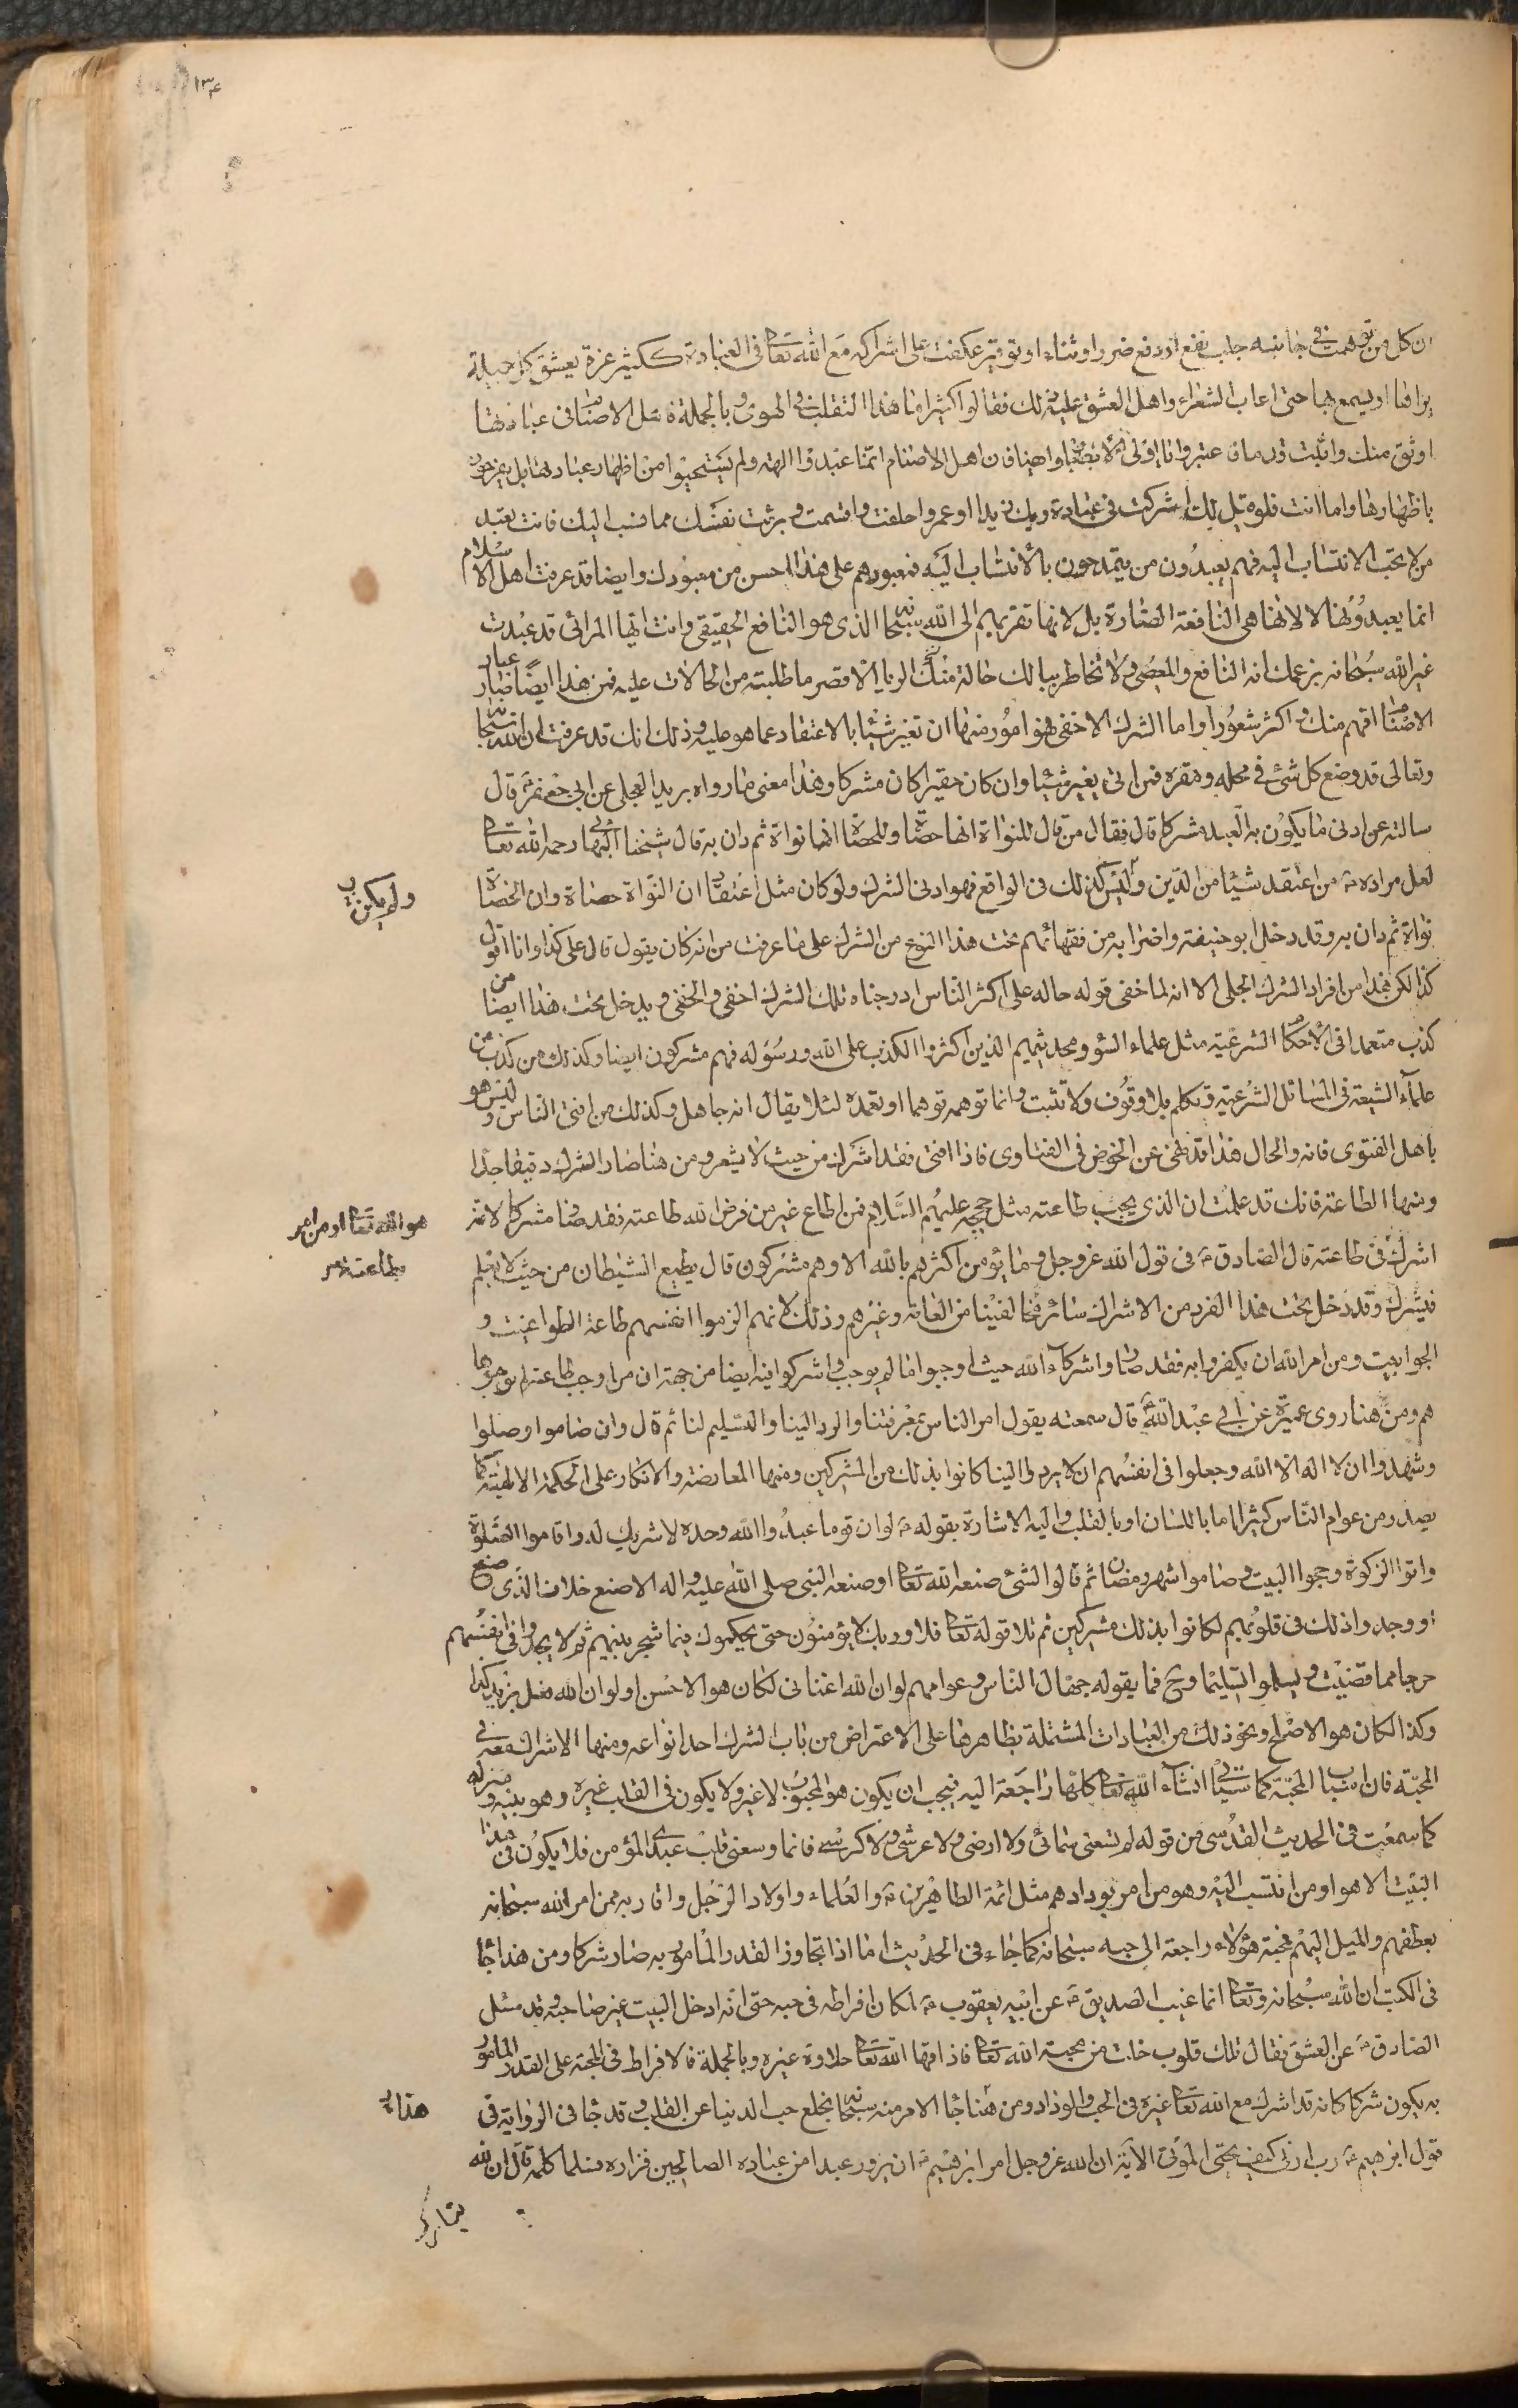 ١٣٤
ان كل من توهمت في جانبه جلب نفع او دفع ضرر او ثناء او توقير عكفت على اشراكه مع الله تعا في العبادة ككثير عزة يعشق كل جميلة
يراها او يسمع بها حتى اعاب الشعراء واهل العشق عليه ذلك فقالوا كثير اما هذا التقلب في الهوى وبالجملة فاهل الاصنام في عبادتها
اوثق منك واثبت قدما فاعتبروا يا اولي الابصار وايضا فان اهل الاصنام انما عبدوا الهة ولم يستحيوا من اظهار عبادتها بل يفرحون
باظهارها واما انت فلو قيل لك اشركت في عبادة ربك زيدا او عمروا حلفت واقسمت وبرئت نفسك مما نسب اليك فانت تعبد
من لا تحب الانتساب اليه فهم يعبدون من يتمدحون بالانتساب اليه فمعبودهم على هذا احسن من معبودك وايضا قد عرفت اهل الاسلام
انما يعبدونها لا لانها هي النافعة الضارة بل لانها تقربهم الى الله سبحانه الذي هو النافع الحقيقي وانت ايها المرائي قد عبدت
غير الله سبحانه بزعمك انه النافع والمعطي ولا تخاطر ببالك حالة منك الريا الا قصر ما طلبته من الحالات عليه فمن هذا ايضا صار عباد
الاصنام افهم منك واكثر شعورا واما الشرك الاخفى فهو امور منها ان تغير شيئا بالاعتقاد عما هو عليه وذلك انك قد عرفت ان الله سبحانه
وتعالى قد وضع كل شئ في محله ومقره فمن اتى يغير شيئا وان كان حقيرا كان مشركا وهذا معنى ما رواه بريد العجلي عن ابي جعفر ع قال
سالته عن ادنى ما يكون به العبد مشركا قال فقال من قال للنواة انها حصاة وللحصاة انها نواة ثم دان به قال شيخنا البهائي رحمه الله تعا
لعل مراده ع من اعتقد شيئا من الدين وليس كذلك في الواقع فهو ادنى الشرك ولو كان مثل اعتقاد ان النواة حصاة وان الحصاة
ولم يكن
نواة ثم دان به وقد دخل ابو حنيفة واضرابه من فقهائهم تحت هذا النوع من الشرك على ما عرفت من انه كان يقول قال علي كذا وانا اقول
كذا لكن هذا من افراد الشرك الجلي الا انه لما خفي قوله حاله على اكثر الناس ادرجناه تلك الشرك اخفى والخفي ويدخل تحت هذا ايضا من
كذب متعمدا في الاحكام الشرعية مثل علماء السؤ ومحدثيهم الذين اكثروا الكذب على الله ورسوله فهم مشركون ايضا وكذلك من كذب من
علماء الشيعة في المسائل الشرعية وتكلم بلا وقوف ولا تثبت وانما توهمه توهما او تعمده لئلا يقال انه جاهل وكذلك من افتى الناس وليس هو
باهل الفتوى فانه والحال هذا قد نهي عن الخوض في الفتاوى فاذا افتى فقد اشرك من حيث لا يشعر ومن هنا صار الشرك دقيقا جدا
ومنها الطاعة فانك قد علمت ان الذي يجب طاعته مثل حججه عليهم السلام فمن اطاع غير من فرض الله طاعته فقد صار مشركا لانه
هو الله تعا او من امر
بطاعته
اشرك في طاعته قال الصادق ع في قول الله عز وجل وما يؤمن اكثرهم بالله الا وهم مشركون قال يطيع الشيطان من حيث لا يعلم
فيشرك وقد دخل تحت هذا الفرد من الاشراك سائر مخالفينا من العامة وغيرهم وذلك لانهم الزموا انفسهم طاعة الطواغيت و
الجوابيت ومن امر الله ان يكفروا به فقد صاروا شركاء الله حيث اوجبوا ما لم يوجب واشركوا فيه ايضا من جهة ان من اوجب طاعته لم يوجبوها
هم ومن هنا روى عميرة عن ابي عبد الله ع قال سمعته يقول امر الناس بمعرفتنا والرد الينا والتسليم لنا ثم قال وان صاموا وصلوا
وشهدوا ان لا اله الا الله وجعلوا في انفسهم ان لا يردوا الينا كانوا بذلك من المشركين ومنها المعارضة والانكار على الحكمة الالهية كما
يصدر من عوام الناس كثيرا اما باللسان او بالقلب واليه الاشارة بقوله ع لو ان قوما عبدوا الله وحده لا شريك له واقاموا الصلوة
واتوا الزكوة وحجوا البيت وصاموا شهر رمضان ثم قالوا لشئ صنعه الله تعا او صنعه النبي صلى الله عليه واله الا صنع خلاف الذي صنع
او وجدوا ذلك في قلوبهم لكانوا بذلك مشركين ثم تلا قوله تعا فلا وربك لا يؤمنون حتى يحكموك فيما شجر بينهم ثم لا يجدوا في انفسهم
حرجا مما قضيت ويسلموا تسليما وح فما يقوله جهال الناس وعوامهم لو ان الله اغناني لكان هو الاحسن او لو ان الله فعل بزيد كذا
وكذا لكان هو الاصلح ونحو ذلك من العبارات المشتملة بظاهرها على الاعتراض من باب الشرك احد انواعه ومنها الاشراك معه في
المحبة فان اسباب المحبة كما سياتي انشاء الله تعا كلها راجعة اليه فيجب ان يكون هو المحبوب لا غير ولا يكون في القلب غيره وهو بيته ومنزله
كما سمعت في الحديث القدسي من قوله لم تسعني سمائي ولا ارضي ولا عرشي ولا كرسيي فانما وسعني قلب عبدي المؤمن فلا يكون في هذا
البيت الا هو او من انتسب اليه وهو من امر بودادهم مثل ائمة الطاهرين ع والعلماء واولاد الرجل واقاربه ممن امر الله سبحانه
بعطفهم والميل اليهم فمحبة هؤلاء راجعة الى حبه سبحانه كما جاء في الحديث اما اذا تجاوز القدر المأمور به صار شركا ومن هذا جاء
في الكتب ان الله سبحانه وتعا انما غيب الصديق ع عن ابيه يعقوب ع لمكان افراطه في حبه حتى انه ادخل البيت غير صاحبه وقد سئل
الصادق ع عن العشق فقال تلك قلوب خلت من محبة الله تعا فاذاقها الله تعا حلاوة غيره وبالجملة فالافراط في المحبة على القدر المأمور
به يكون شركا كانه قد اشرك مع الله تعا غيره في الحب والوداد ومن هنا جاء الامر منه سبحانه بخلع حب الدنيا عن القلب وقد جاء في الرواية في
هذا
قول ابرهيم ع رب ارني كيف تحيي الموتى الاية ان الله عز وجل امر ابرهيم ع ان يزور عبدا من عباده الصالحين فزاره فلما كلمه قال ان لله